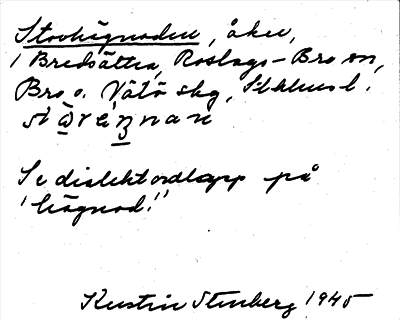 Storhägnaden, åker,
i Bredsättra, Roslags-Bro sn,
Bro o. Vätö skg, Sthlms l.
Se dialektordlapp på
"hägnad"
Kerstin Stenberg 1945